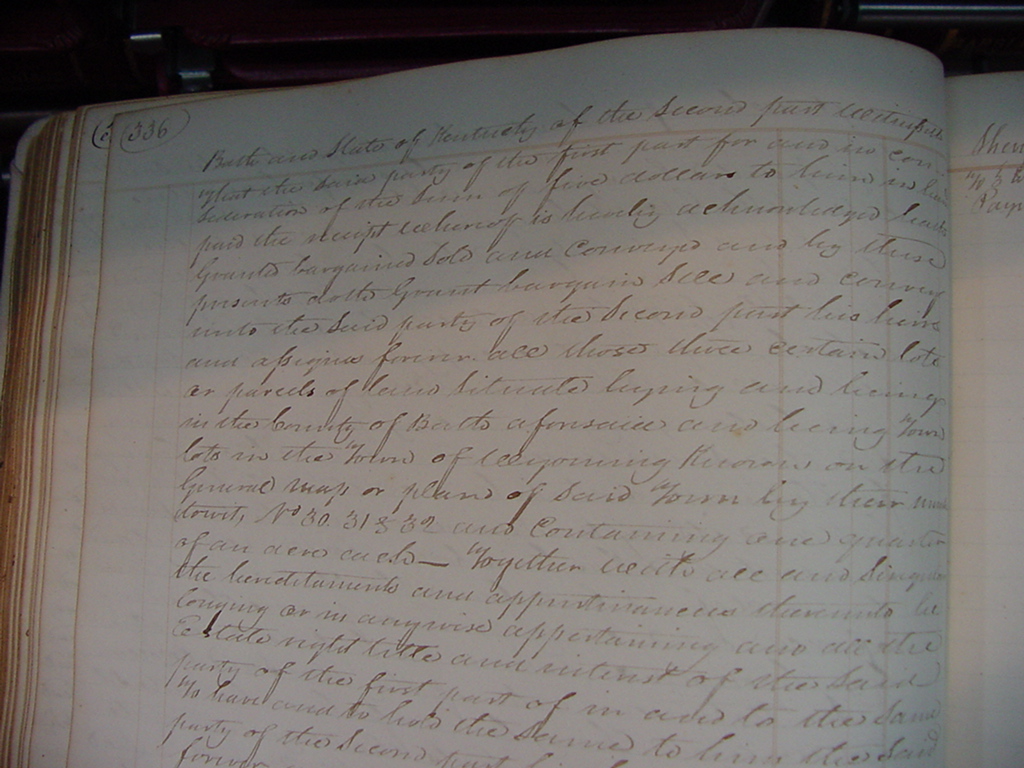 336
Bath and State of Kentucky of the Second part witnesseth
That the Said party of the first part for and in con-
sideration of the Sum of five dollars to him in hand
paid the receipt whereof is hereby acknowledged hath
Granted bargained Sold and Conveyed and by these
presents doth Grant bargain Sell and convey
unto the Said party of the Second part his heirs
and assigns forever all those three certain lots
or parcels of land Situate lying and being
in the County of Bath aforesaid and being Town
lots in the Town of Wyoming Known on the
General map or plan of Said Town by their
No 30. 31 & 32 and Containing one quarter
of an acre each — Together with all and Singular
the hereditaments and appurtinances thereunto be
longing or in anywise appertaining and all the
Estate right title and interest of the Said
party of the first part of in and to the Same
To have and to hold the Same to him the Said
party of the Second part his
forever
Shen